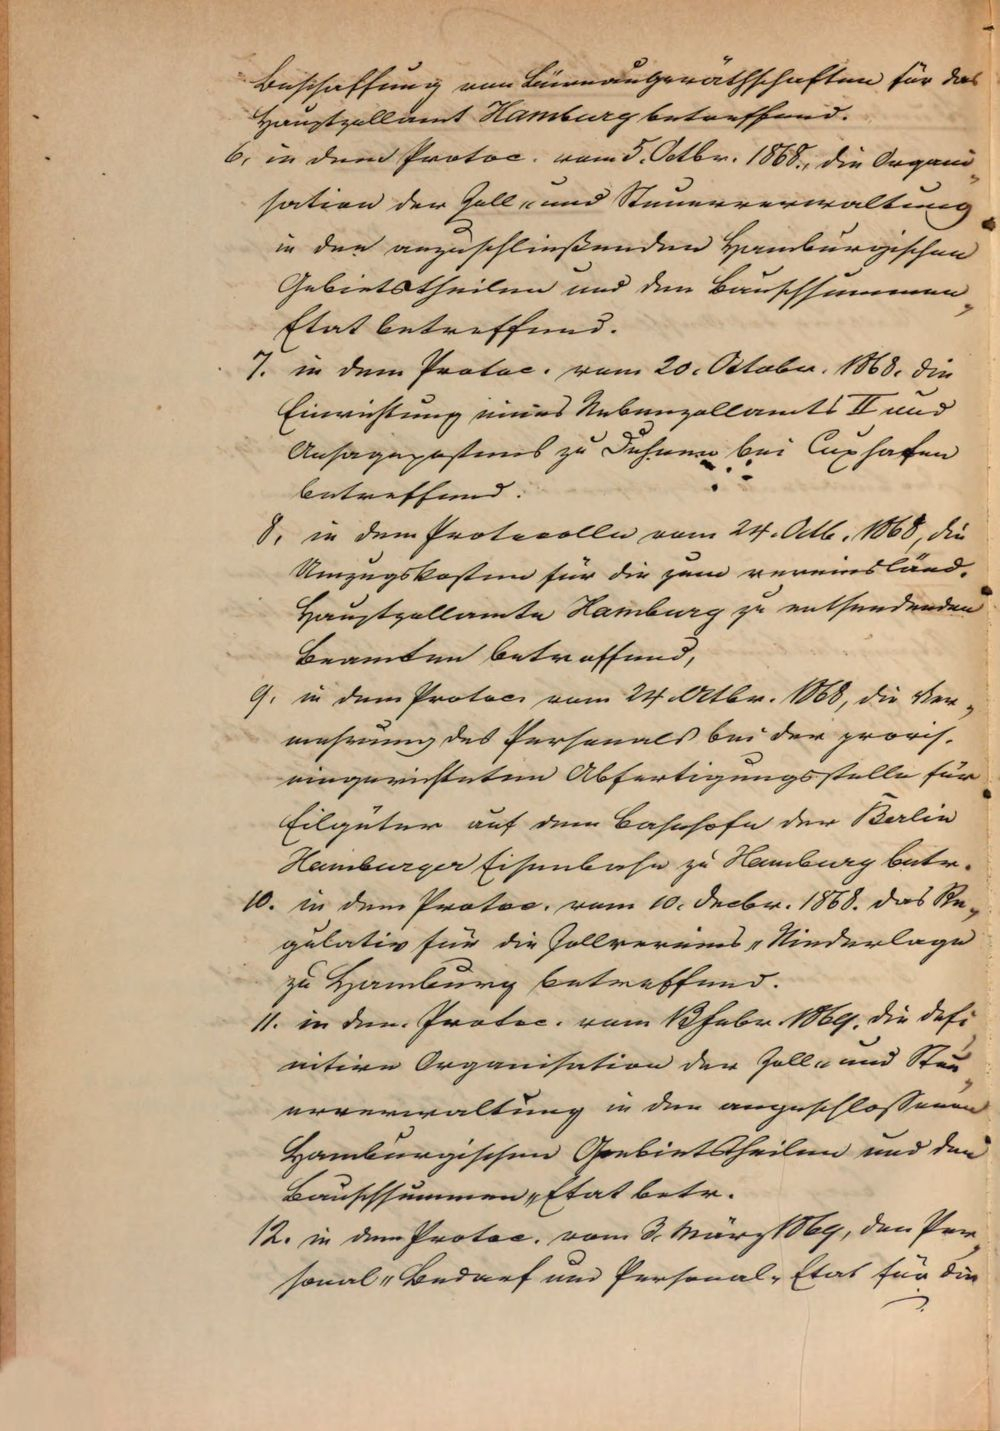 Beschaffung von Büreaugeräthschaften für das
Hauptzollamt Hamburg betreffend.
6, in dem Protoc. vom 5. Octbr. 1868., die Organi„
sation der Zoll „ und Steuerverwaltung
in den anzuschließenden Hamburgischen
Gebietstheilen und den Bauschsummen„
Etat betreffend.
7. in dem Protoc. vom 20. October. 1868. die
Einrichtung eines Nebenzollamts II und
Ansagepostens zu Duhnen bei Cuxhafen
betreffend.
8, in dem Protocolle vom 24. Octb. 1868, die
Umzugskosten für die zum vereinsländ.
Hauptzollamte Hamburg zu entsendenden
Beamten betreffend,
9, in dem Protoc. vom 24. Octbr. 1868, die Ver„
mehrung des Personals bei der provis.
eingerichteten Abfertigungsstelle für
Eilgüter auf dem Bahnhofe der Berlin
Hamburger Eisenbahn zu Hamburg betr.
10. in dem Protoc. vom 10. Decbr. 1868. das Re„
gulativ für die Zollvereins „ Niederlage
zu Hamburg betreffend.
11. in dem Protoc. vom 13 Febr. 1869. die defi„
nitive Organisation der Zoll „ und Steu„
erverwaltung in den angeschlossenen
Hamburgischen Gebietstheilen und den
Bauschsummen „ Etat betr.
12. in dem Protoc. vom 3. März 1869, den Per„
sonal „ Bedarf und Personal „ Etat für die